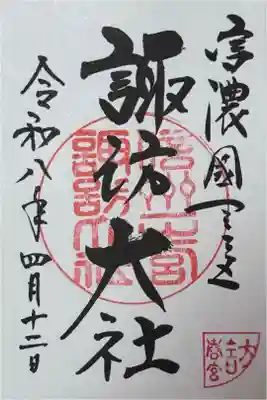 信濃國一之宮
諏訪大社
令和八年四月十二日
信州一宮
諏訪大社